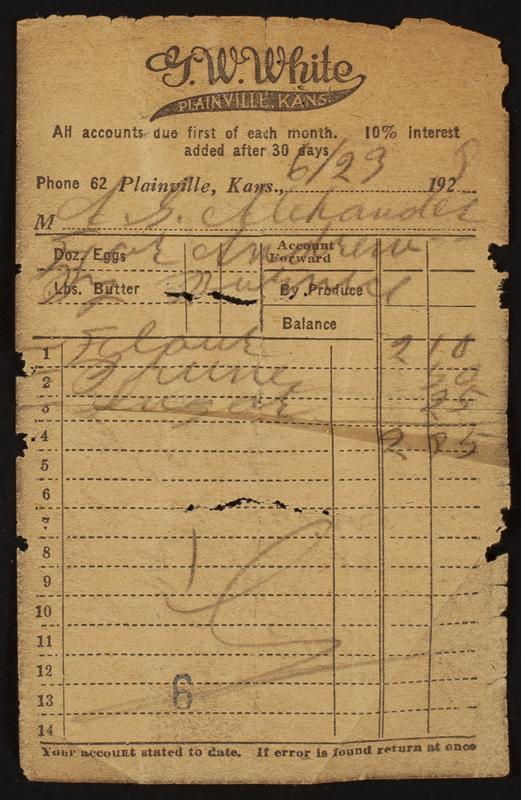 G.W. White
PLAINVILLE, KANS.
All accounts due first of each month. 10% interest
added after 30 days
Phone 62 Plainville, Kans., 6/23 1925
M A. S. Alexander
For Andrew
Doz. Eggs
Account Forward
By
Lbs. Butter
By Produce
Balance
1 Flour 2 10
2 Prunes 50
3 Sugar 25
4 2 85
5
6
7
8
9
10
11
12
13
14
6
Your account stated to date. If error is found return at once